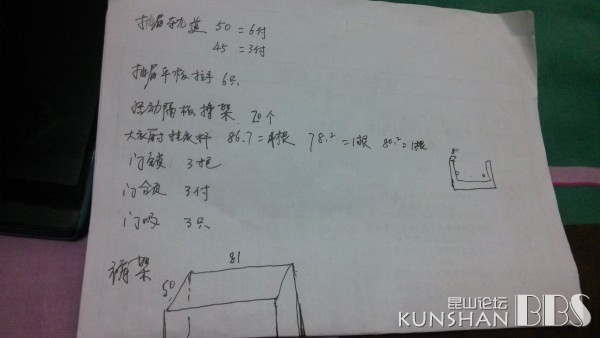 抽屉轨道 50=6付
45=3付
抽屉平板拉手 6只
活动隔板搁架 20个
大衣厨挂衣杆 86.7=4根 78.2=1根 80.2=1根
门锁 3把
门合页 3付
门吸 3只
裤架
81
50
昆山论坛
KUNSHAN BBS